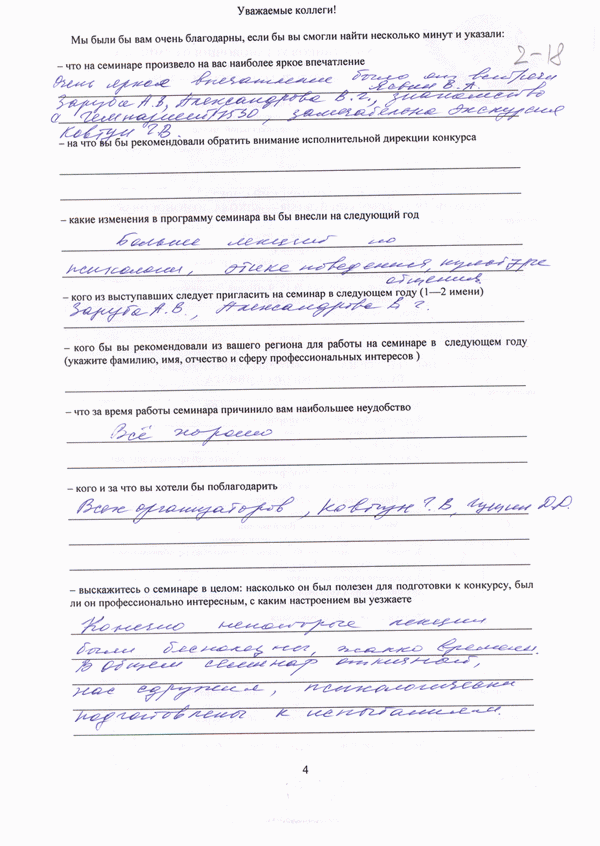 Уважаемые коллеги!
Мы были бы вам очень благодарны, если бы вы смогли найти несколько минут и указали:
2-18
– что на семинаре произвело на вас наиболее яркое впечатление
Очень яркое впечатление было от встречи
Ясвин В.А.
Заруба А.В, Александрова В.Г., знакомство
с Гимназией №1530, замечательна экскурсия
Ковтун Г.В.
– на что вы бы рекомендовали обратить внимание исполнительной дирекции конкурса
– какие изменения в программу семинара вы бы внесли на следующий год
Больше лекций по
психологии, этике поведения, культуре
общения.
– кого из выступавших следует пригласить на семинар в следующем году (1—2 имени)
Заруба А.В., Александрова В Г.
– кого бы вы рекомендовали из вашего региона для работы на семинаре в следующем году
(укажите фамилию, имя, отчество и сферу профессиональных интересов )
– что за время работы семинара причинило вам наибольшее неудобство
Всё хорошо
– кого и за что вы хотели бы поблагодарить
Всех организаторов, Ковтун Г.В, Гущин Д.Д.
– выскажитесь о семинаре в целом: насколько он был полезен для подготовки к конкурсу, был
ли он профессионально интересным, с каким настроением вы уезжаете
Конечно некоторые лекции
были бесполезны, жалко времени.
В общем семинар отличный,
нас сдружил, психологически
подготовлены к испытаниям.
4